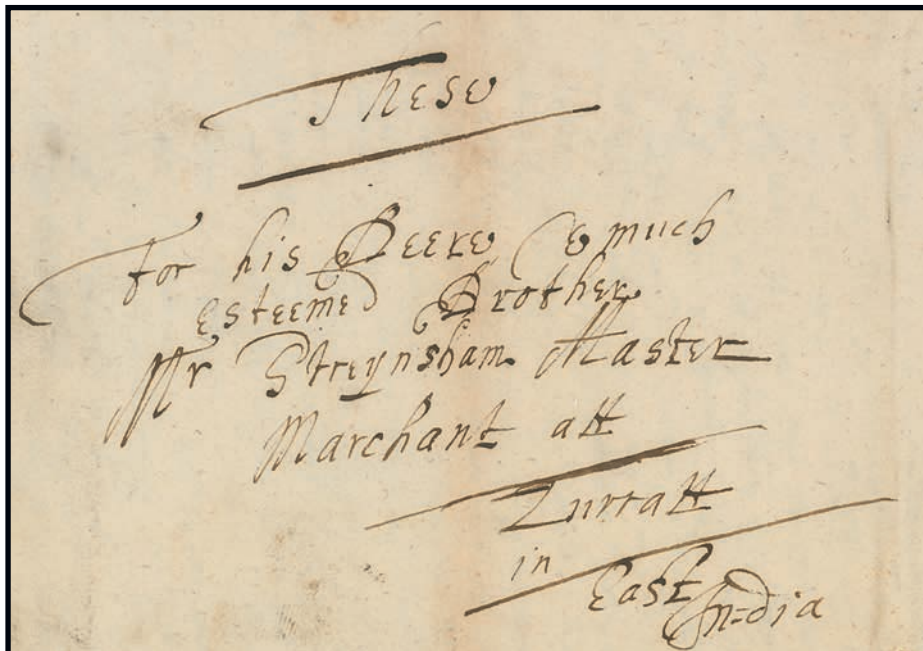 These
For his Deere & much
esteemed Brother
Mr Streynsham Master
Marchant att
Zurratt
in
East
In=dia